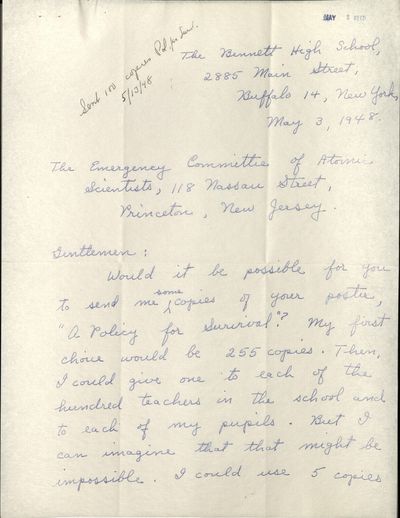 MAY
Send 100 copies Pol. for Sur.
5/13/48
The Bennett High School,
2885 Main Street,
Buffalo 14, New York,
May 3, 1948.
The Emergency Committee of Atomic
Scientists, 118 Nassau Street,
Princeton, New Jersey.
Gentlemen:
Would it be possible for you
to send me some copies of your poster,
"A Policy for Survival"? My first
choice would be 255 copies. Then,
I could give one to each of the
hundred teachers in the school and
to each of my pupils. But I
can imagine that that might be
impossible. I could use 5 copies